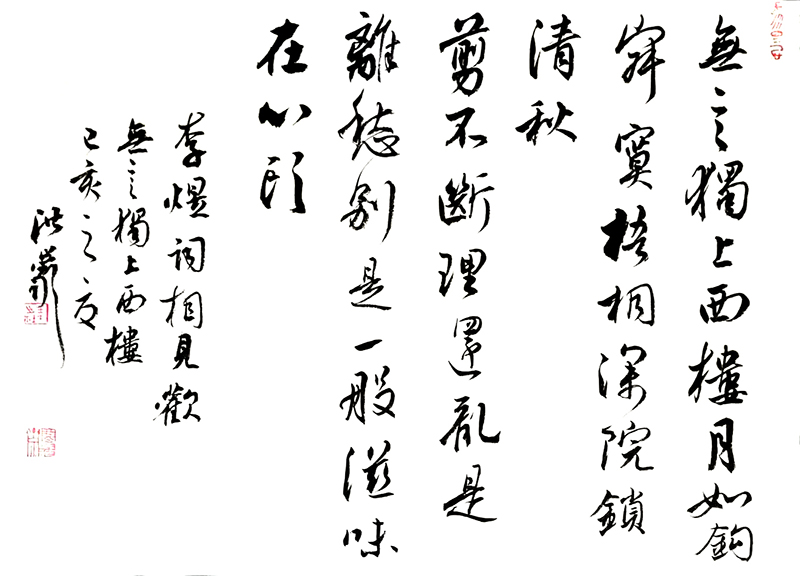 無言獨上西樓月如鉤
寂寞梧桐深院鎖
清秋
剪不斷理還亂是
離愁別是一般滋味
在心頭
李煜詞相見歡
無言獨上西樓
己亥之夏